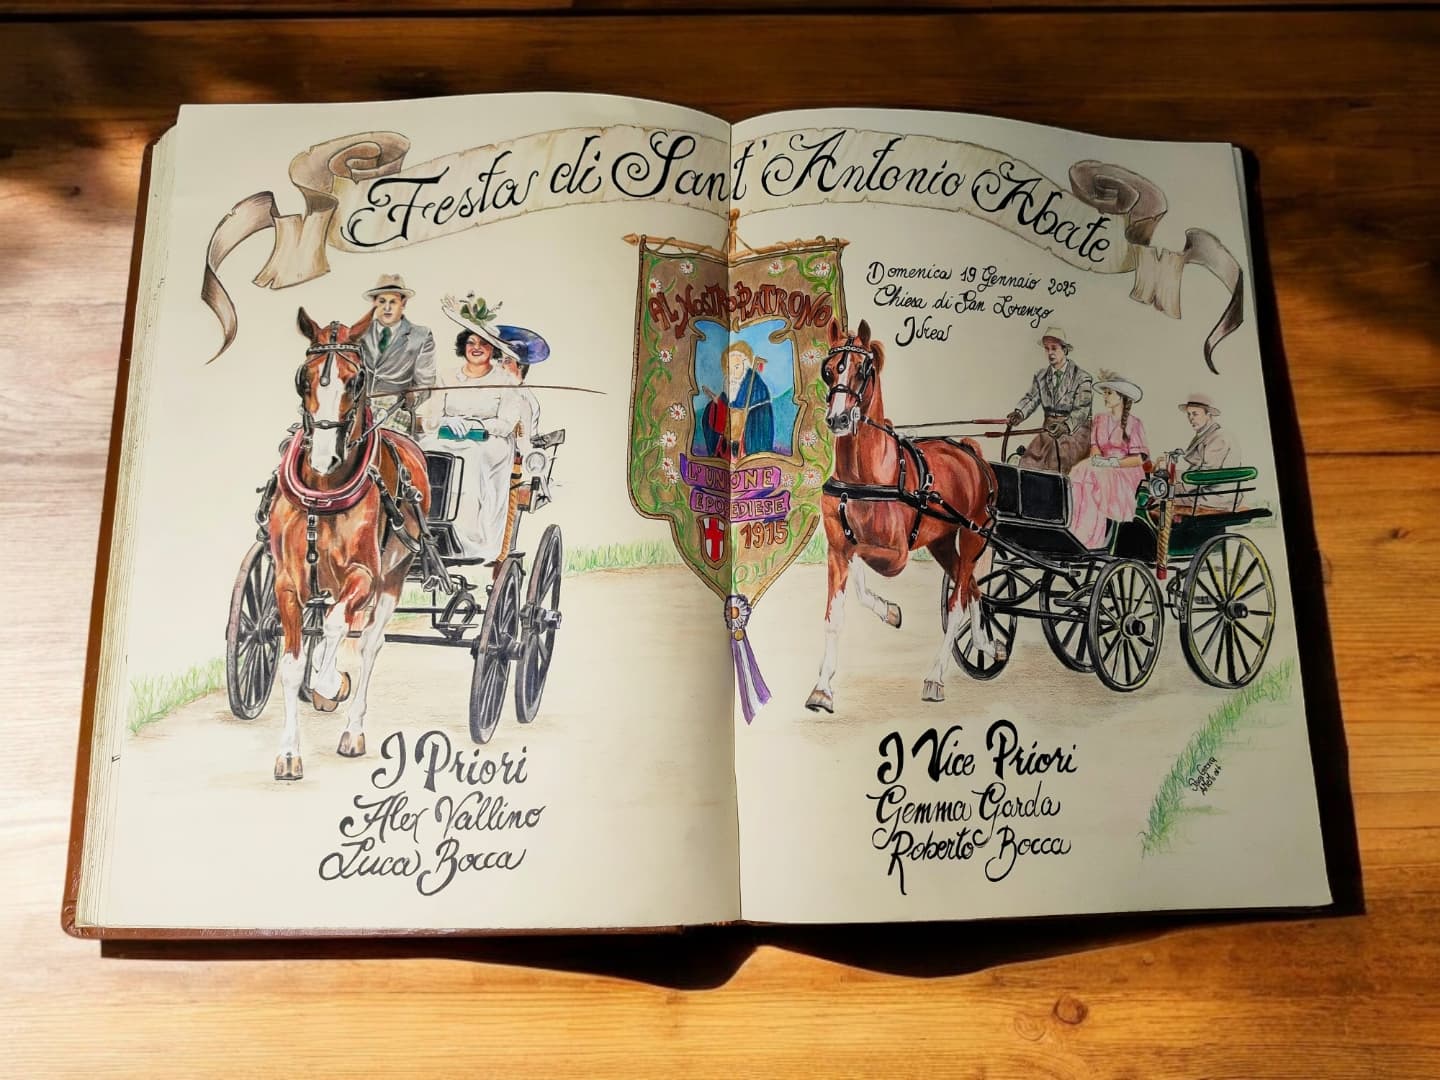 Festa di Sant'Antonio Abate
Domenica 19 Gennaio 2025
Chiesa di San Lorenzo
Ivrea
AL NOSTRO PATRONO
L'UNIONE
EPOREDIESE
1915
I Priori
Alex Vallino
Luca Bocca
I Vice Priori
Gemma Garda
Roberto Bocca